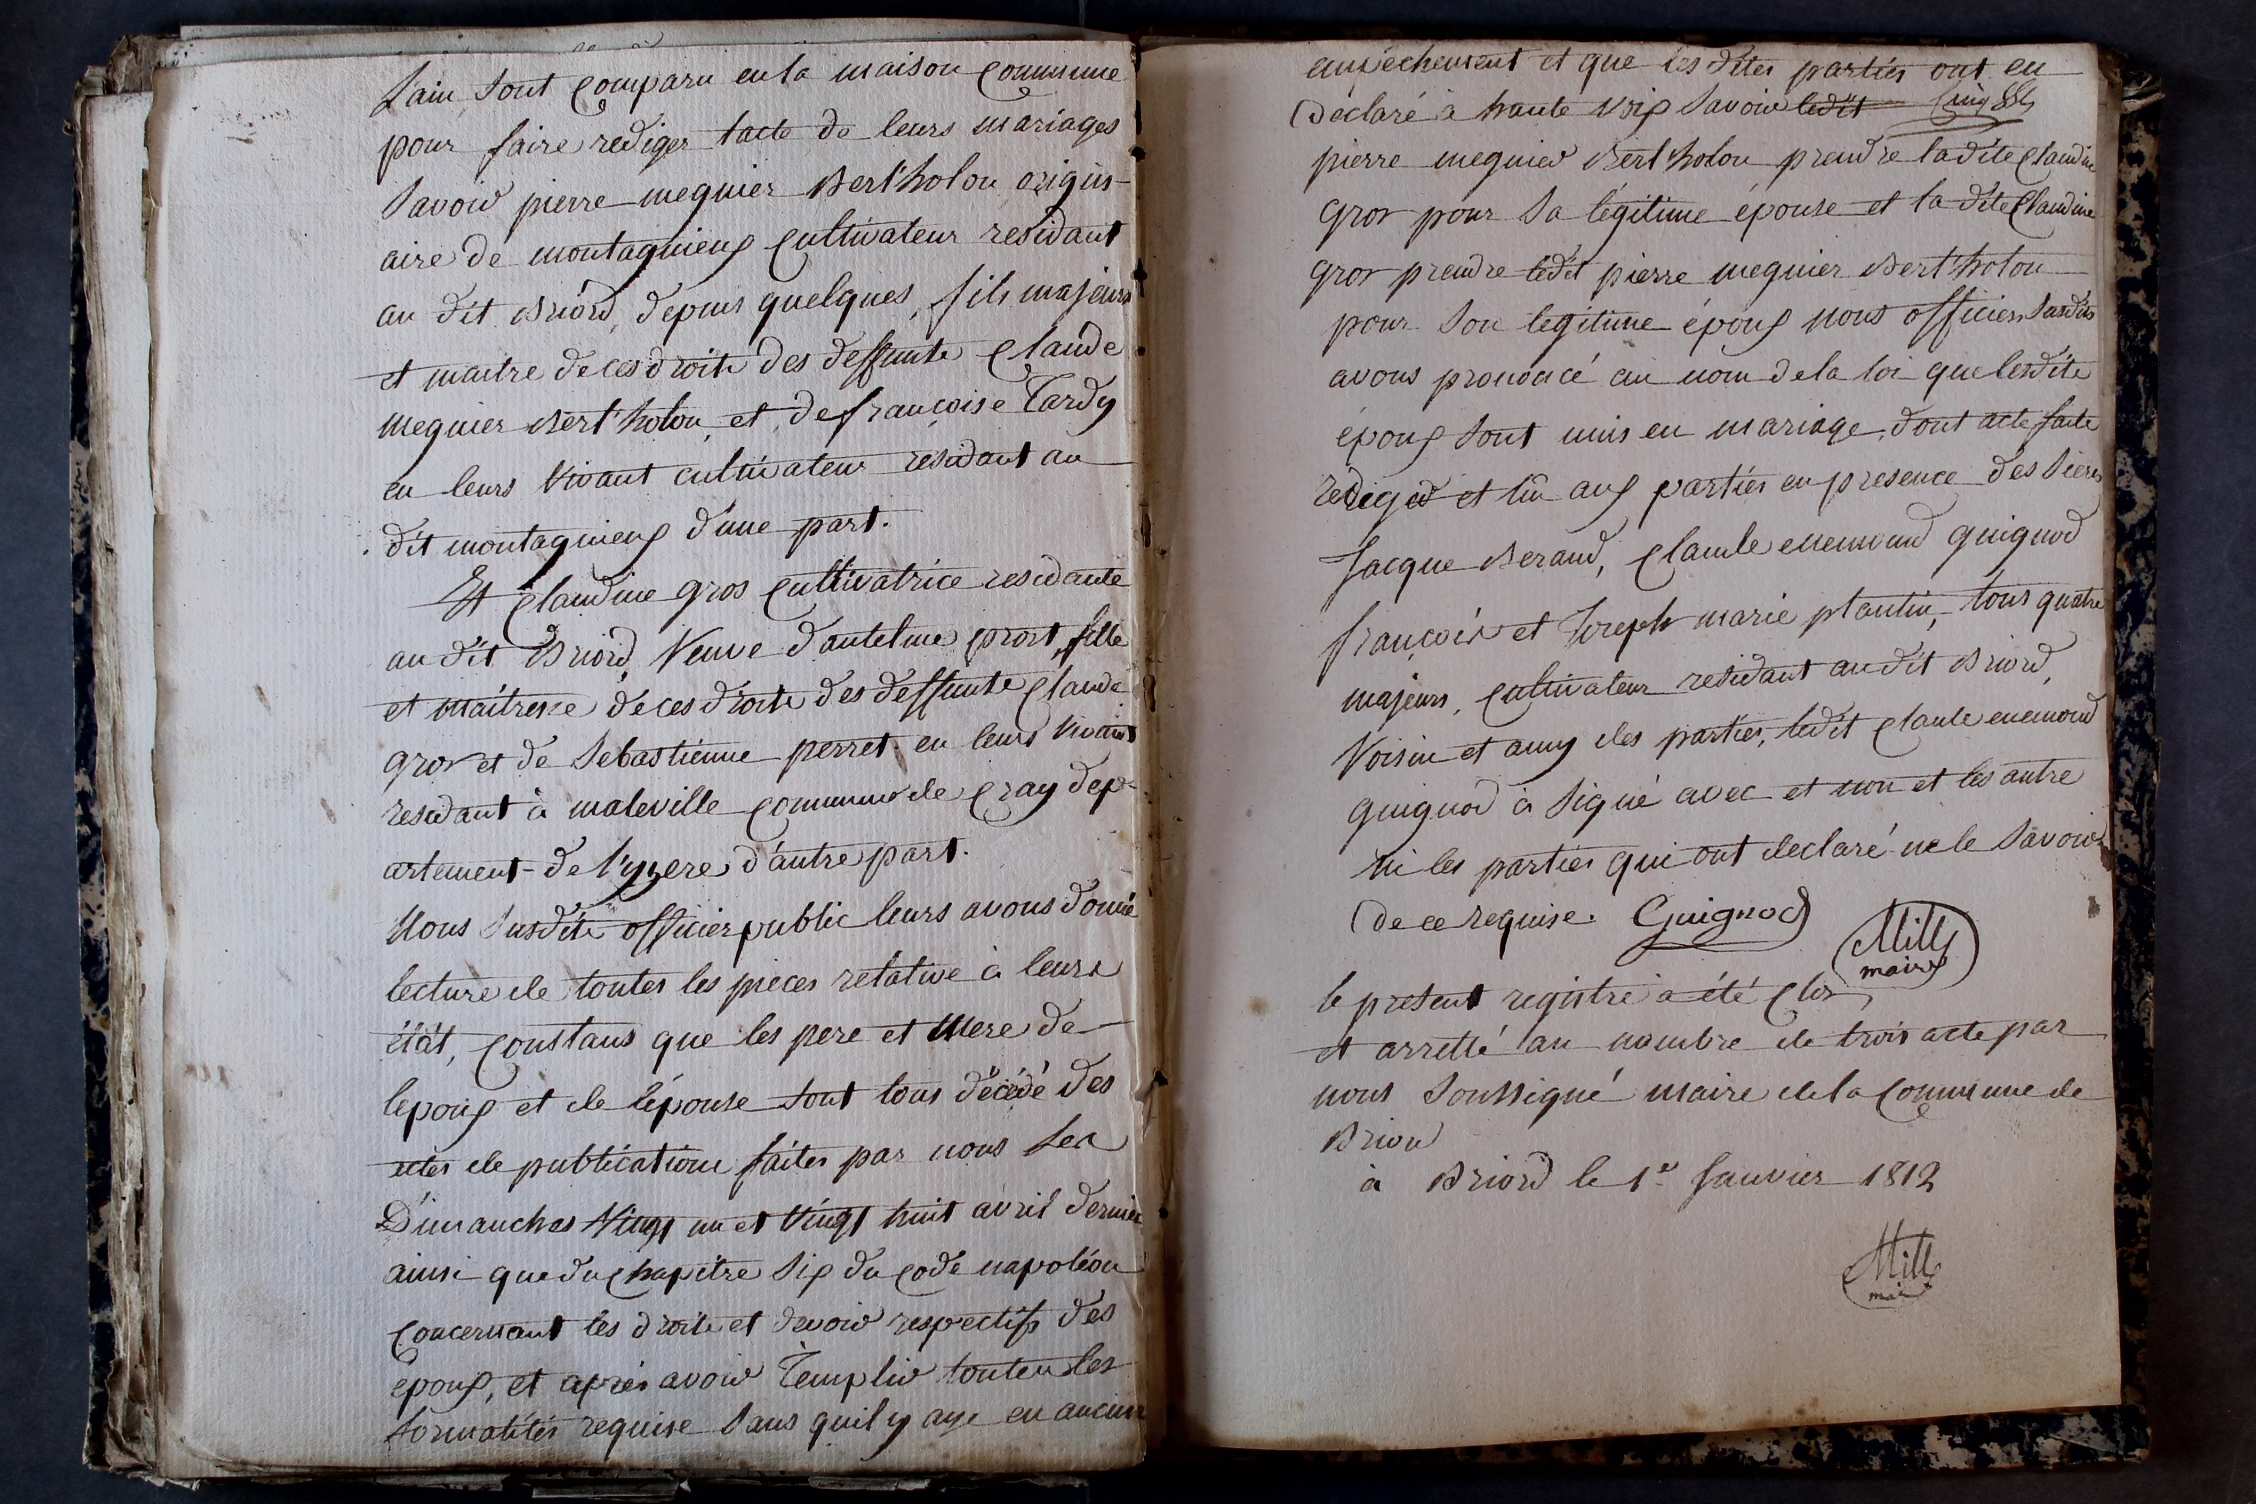 Lain sont comparu en la maison commune
pour faire rediger lacte de leurs mariages
Savoir pierre meguier Bert'holon origin-
aire de montagnieux Cultivateur residant
au dit Briord, depuis quelques, fils majeurs
et maitre de ces droits des deffunts Claude
meguier Bert'holon, et de françoise Tardy
en leurs Vivant cultivateur résidant au
dit montagnieux d'une part.
Et Claudine gros Cultivatrice residante
au dit Briord, Veuve d'antelme prost, fille
et maitresse de ces droits des deffunts Claude
gros et de Sebastienne perret en leurs Vivant
residant à maleville commune de Cray dep-
artement de l'yzere d'autre part.
Nous Susdits officier public leurs avons donné
lecture de toutes les pieces relative à leurs
état, Constans que les pere et Mere de
lepoux et de lépouse sont tous décédé des
actes de publications faites par nous Les
Dimanches Vingt un et Vingt huit avril dernier
ainsi que du Chapitre Six du Code napoléon
Concernant les droits et devoir respectifs des
epoux, et après avoir remplir toutes les
formalités requise Sans quil y aye eu aucun
empêchement et que les dites parties ont eu
Déclaré à haute voix Savoir ledit
pierre meguier Bert'holon prendre ladite Claudine
gros pour Sa légitime épouse et la dite Claudine
gros prendre ledit pierre meguier Bert'holon
pour Son legitime époux nous officier Susdits
avons prononcé au nom de la loi que lesdits
époux sont unis en mariage, dont acte faite
rediger et lû aux parties en presence des Sieurs
Jacque Beraud, Claude ennemond guignod
françois et Joseph marie plantin, tous quatre
majeurs, Cultivateur residant audit Briord,
Voisin et amy des parties, ledit Claude enemond
guignod à Signé avec et non et les autre
ni les parties qui ont declaré ne le Savoir
de ce requise. Guignod
Mill
maire
le present registre a été Clos
et arretté au nombre de trois acte par
nous Soussigné maire de la Commune de
Briord
à Briord le 1er Janvier 1812
Mill
maire